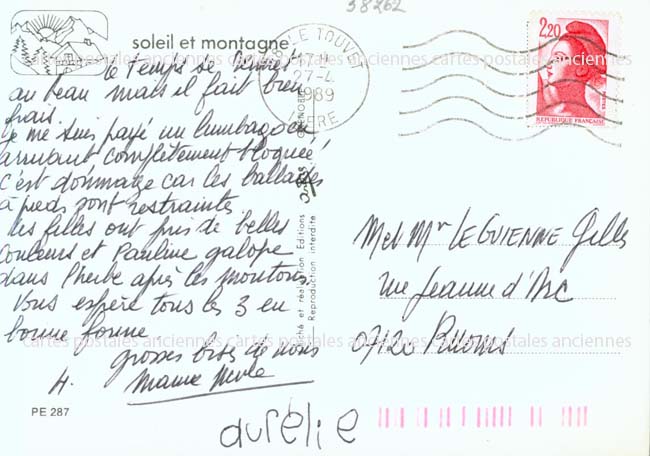 38262
soleil et montagne
LE TOUVET
17H
27-4
1989
ISERE
2,20
REPUBLIQUE FRANÇAISE
le temps se
au beau mais il fait bien
frais.
Je me suis payé un lumbago en
arrivant complètement bloquée
c'est dommage car les ballades
à pieds sont restraintes
les filles ont pris de belles
couleurs et Pauline galope
dans l'herbe après les moutons
Vous espère tous les 3 en
bonne forme
grosses bises de nous
4. Mamie
aurélie
Mr LEGUIENNE Gilles
rue Jeanne d'Arc
07120
GRENOBLE
et réalisation Editions
Reproduction interdite
cartes postales anciennes cartes postales anciennes cartes postales anciennes
cartes postales anciennes cartes postales anciennes cartes postales anciennes
PE 287